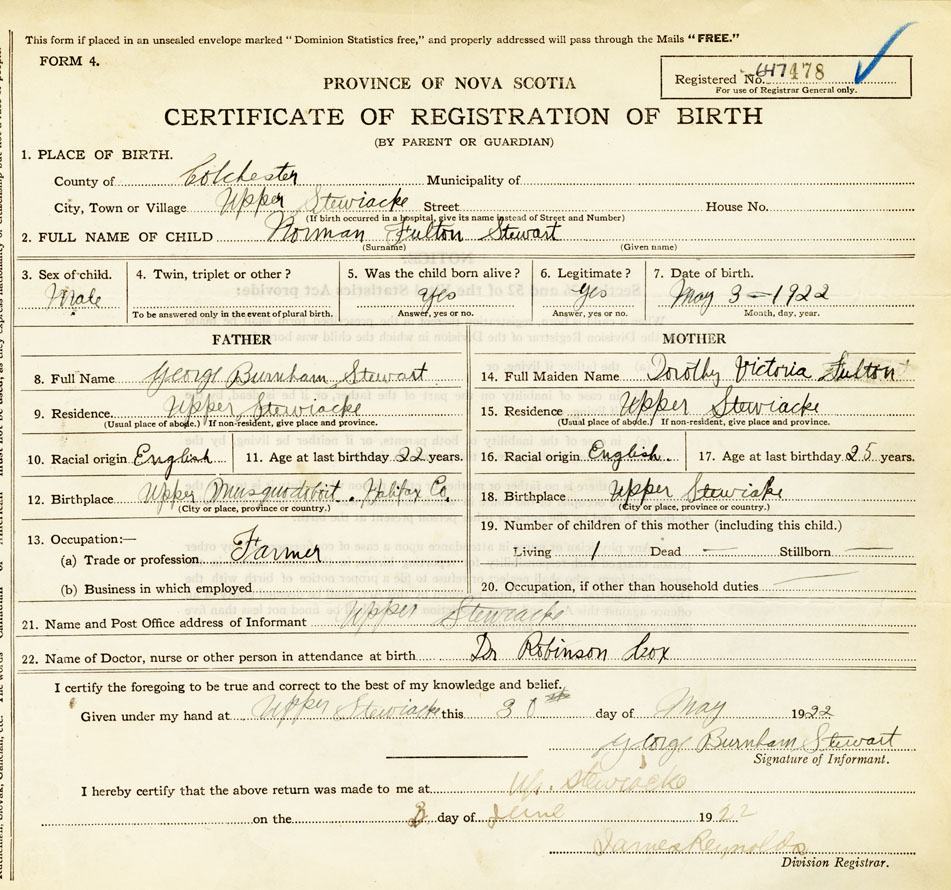 This form if placed in an unsealed envelope marked "Dominion Statistics free," and properly addressed will pass through the Mails "FREE."
FORM 4.
Registered No. 478
For use of Registrar General only.
PROVINCE OF NOVA SCOTIA
CERTIFICATE OF REGISTRATION OF BIRTH
(BY PARENT OR GUARDIAN)
1. PLACE OF BIRTH.
County of Colchester Municipality of
City, Town or Village Upper Stewiacke Street House No.
(If birth occurred in a hospital, give its name instead of Street and Number)
2. FULL NAME OF CHILD Norman Fulton Stewart
(Surname) (Given name)
3. Sex of child. 4. Twin, triplet or other? 5. Was the child born alive? 6. Legitimate? 7. Date of birth.
Male yes yes May 3 - 1922
To be answered only in the event of plural birth. Answer, yes or no. Answer, yes or no. Month, day, year.
FATHER MOTHER
8. Full Name George Burnham Stewart 14. Full Maiden Name Dorothy Victoria Fulton
9. Residence Upper Stewiacke 15. Residence Upper Stewiacke
(Usual place of abode.) If non-resident, give place and province. (Usual place of abode.) If non-resident, give place and province.
10. Racial origin English 11. Age at last birthday 22 years. 16. Racial origin English. 17. Age at last birthday 25 years.
12. Birthplace Upper Musquodoboit. Halifax Co. 18. Birthplace Upper Stewiacke
(City or place, province or country.) (City or place, province or country.)
13. Occupation:— 19. Number of children of this mother (including this child.)
(a) Trade or profession Farmer Living 1 Dead — Stillborn —
(b) Business in which employed 20. Occupation, if other than household duties
21. Name and Post Office address of Informant Upper Stewiacke
22. Name of Doctor, nurse or other person in attendance at birth Dr Robinson Cox
I certify the foregoing to be true and correct to the best of my knowledge and belief.
Given under my hand at Upper Stewiacke this 30th day of May 1922
George Burnham Stewart
Signature of Informant.
I hereby certify that the above return was made to me at Up. Stewiacke
on the day of June 1922
James Reynolds
Division Registrar.